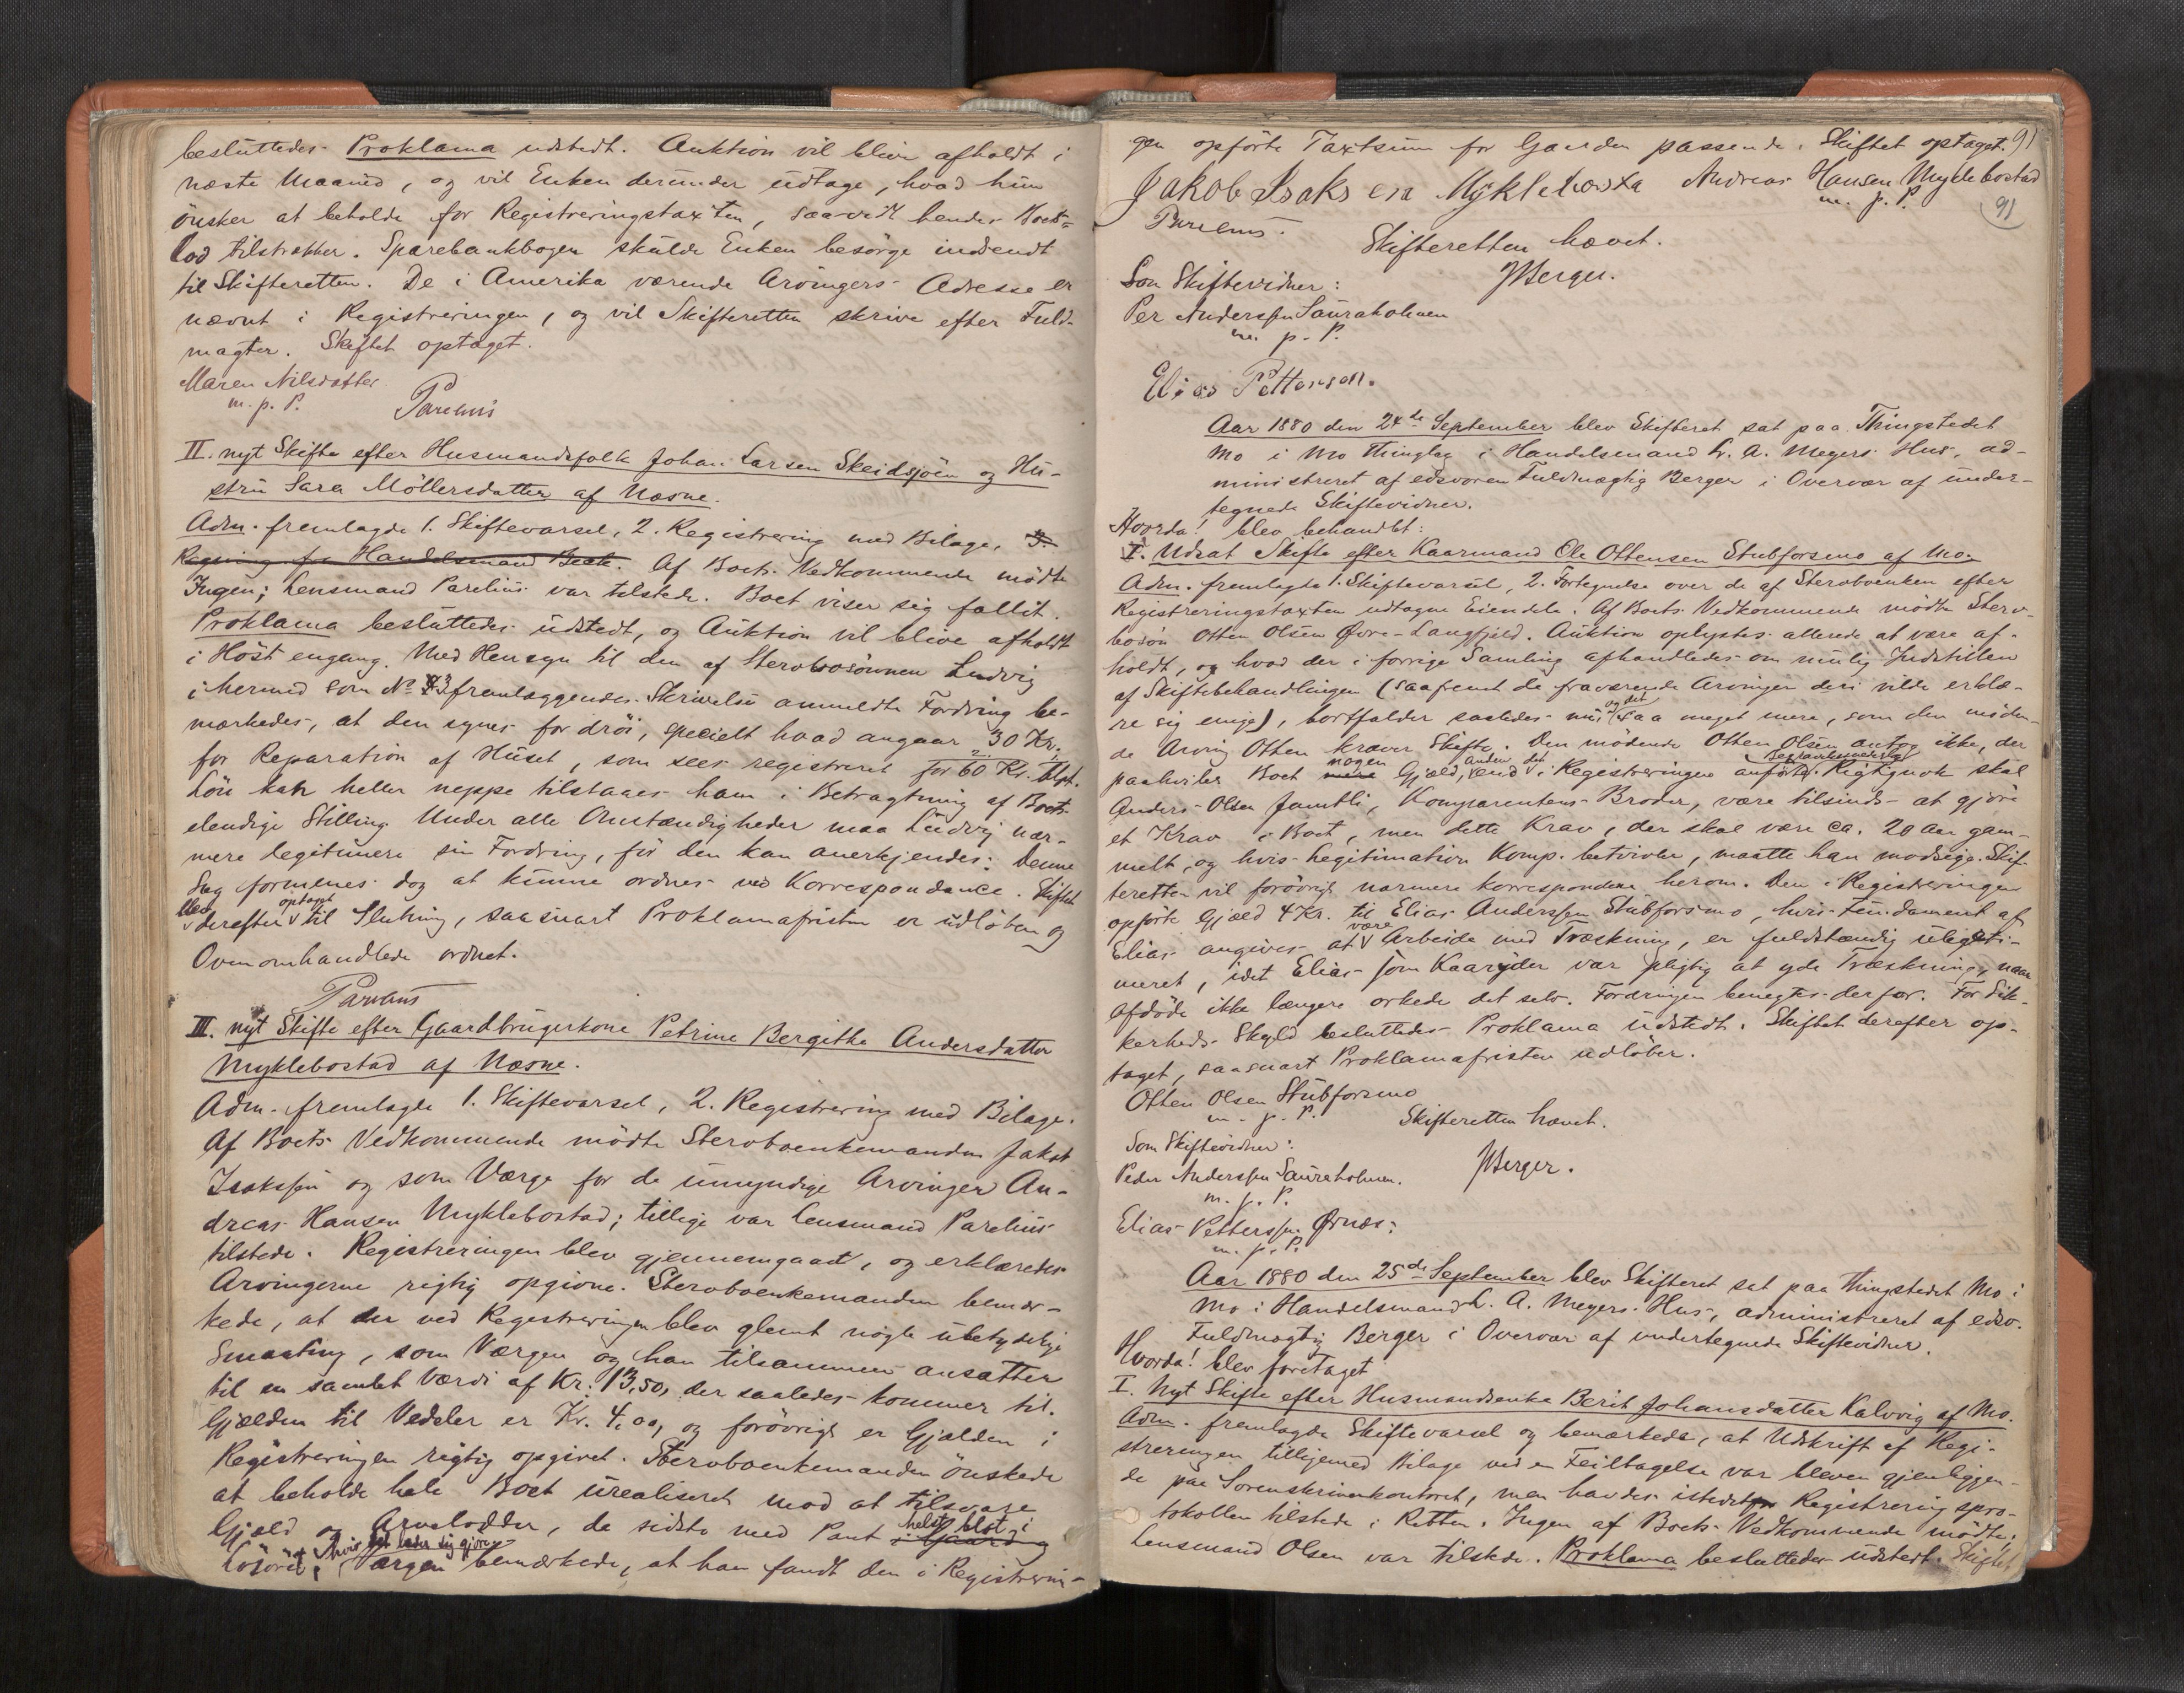 besluttedes Proklama udstedt. Auktion vil blive afholdt i
næste Maaned, og vil Enken derunder udtage, hvad hun
ønsker at beholde for Registreringstaxten, saavidt hendes Boes-
lod tilstrækker. Sparebankbogen skulde Enken besørge indsendt
til Skifteretten. De i Amerika værende Arvingers Adresse er
nævnt i Registreringen, og vil Skifteretten skrive efter Fuld-
magter. Skiftet optaget.
Maren Nilsdatter
m. p. P. Parelius
II. nyt Skifte efter Husmandsfolk Johan Larsen Skeidsjøen og Hu-
stru Sara Möllersdatter af Næsne.
Adm. fremlagde 1. Skiftevarsel, 2. Registrering med Bilage, 3.
Regning fra Handelsmand Beck. Af Boets Vedkommende mödte
Ingen; Lensmand Parelius var tilstede. Boet viser sig fallit.
Proklama besluttedes udstedt, og Auktion vil blive afholdt
i Höst engang. Med Hensyn til den af Stervbosönnen Ludvig
i hermed som No 3 fremlæggendes Skrivelse anmeldte Fordring be-
mærkedes, at den synes for dröi, specielt hvad angaar 30 Kr.
for Reparation af Huset, som sees registreret for 60 Kr. blot.
Lön kan heller neppe tilstaaes ham i Betragtning af Boets
elendige Stilling. Under alle Omstændigheder maa Ludvig nær-
mere legitimere sin Fordring, för den kan anerkjendes. Denne
Sag formenes dog at kunne ordnes ved Korrespondance. Skiftet
blev derefter optaget til Slutning, saasnart Proklamafristen er udlöben og
Ovenomhandlede ordnet.
Parelius
III. nyt Skifte efter Gaardbrugerkone Petrine Bergithe Andersdatter
Myklebostad af Næsne.
Adm. fremlagde 1. Skiftevarsel, 2. Registrering med Bilage.
Af Boets Vedkommende mödte Stervboenkemanden Jakob
Isakssen og som Værge for de umyndige Arvinger An-
dreas Hansen Myklebostad; tillige var Lensmand Parelius
tilstede. Registreringen blev gjennemgaaet, og erklæredes
Arvingerne rigtig opgivne. Stervboenkemanden bemær-
kede, at der ved Registreringen blev glemt nogle ubetydelige
Smaating, som Værgen og han tilsammen ansætter
til en samlet Værdi af Kr. 13,50, der saaledes kommer til.
Gjælden til Vedeler er Kr. 4,00, og forövrigt er Gjælden i
Registreringen rigtig opgivet. Stervboenkemanden önskede
at beholde hele Boet urealiseret mod at tilsvare
Gjæld og Arvelodder, de sidste med Pant i Gaard og helst blot i
Lösöret, hvis det lader sig gjöre. Værgen bemærkede, at han fandt den i Registrerin-
gen opförte Taxtsum for Gaarden passende. Skiftet optaget. 91
Jakob Isaksen Myklebosta Andreas Hansen Myklebostad
m. p. P. 91
Parelius.
Skifteretten hævet.
Som Skiftevidner: JBerger.
Per Anderssen Sauraholmen
m. p. P.
Elias Pettersen.
Aar 1880 den 24de September blev Skifteret sat paa Thingstedet
Mo i Mo Thinglag i Handelsmand L. A. Meyers Hus, ad-
ministreret af edsvoren Fuldmægtig Berger i Overvær af under-
tegnede Skiftevidner.
Hvorda! blev behandlet:
I. Udsat Skifte efter Kaarmand Ole Ottensen Stubforsmo af Mo.
Adm. fremlagde 1. Skiftevarsel, 2. Fortegnelse over de af Stervboenken efter
Registreringstaxten udtagne Eiendele. Af Boets Vedkommende mödte Sterv-
bosön Otten Olsen Øvre-Langfjeld. Auktion oplystes allerede at være af-
holdt, og hvad der i forrige Samling afhandledes om mulig Indstillen
af Skiftebehandlingen (saafremt de fraværende Arvinger deri vilde erklæ-
re sig enige), bortfalder saaledes nu, og det saa meget mere, som den möden-
de Arving Otten kræver Skifte. Den mödende Otten Olsen antog ikke, der
paahviler Boet nogen Gjæld, anden end det i Registreringen anförte Begravelsesvederlag. Rigtignok skal
Anders Olsen Jamtli, Komparentens Broder, være tilsinds at gjöre
et Krav i Boet, men dette Krav, der skal være ca. 20 Aar gam-
melt, og hvis Legitimation Komp. betvivler, maatte han modsige. Skif-
teretten vil forövrigt nærmere korrespondere herom. Den i Registreringen
opförte Gjæld 4 Kr. til Elias Anderssen Stubforsmo, hvis Fundament af
Elias angives at være Arbeide med Træskning, er fuldstændig ulegiti-
meret, idet Elias som Kaaryder var pligtig at yde Træskning, naar
Afdöde ikke længere orkede det selv. Fordringen benegtes derfor. For Sik-
kerheds Skyld besluttedes Proklama udstedt. Skiftet derefter op-
taget, saasnart Proklamafristen udlöber.
Otten Olsen Stubforsmo
m. p. P. Skifteretten hævet.
Som Skiftevidner:
Peder Anderssen Sauraholmen. JBerger.
m. p. P.
Elias Petterssen Ørnæs:
m. p. P.
Aar 1880 den 25de September blev Skifteret sat paa Thingstedet Mo i
Mo i Handelsmand L. A. Meyers Hus, administreret af edsv.
Fuldmægtig Berger i Overvær af undertegnede Skiftevidner.
Hvorda! blev foretaget
I. Nyt Skifte efter Husmandsenke Berit Johansdatter Kalvvig af Mo.
Adm. fremlagde Skiftevarsel og bemærkede, at Udskrift af Regi-
streringen tilligemed Bilage ved en Feiltagelse var bleven gjenliggen-
de paa Sorenskriverkontoret, men havdes istedet Registreringspro-
tokollen tilstede i Retten. Ingen af Boets Vedkommende mödte;
Lensmand Olsen var tilstede. Proklama besluttedes udstedt. Skiftet